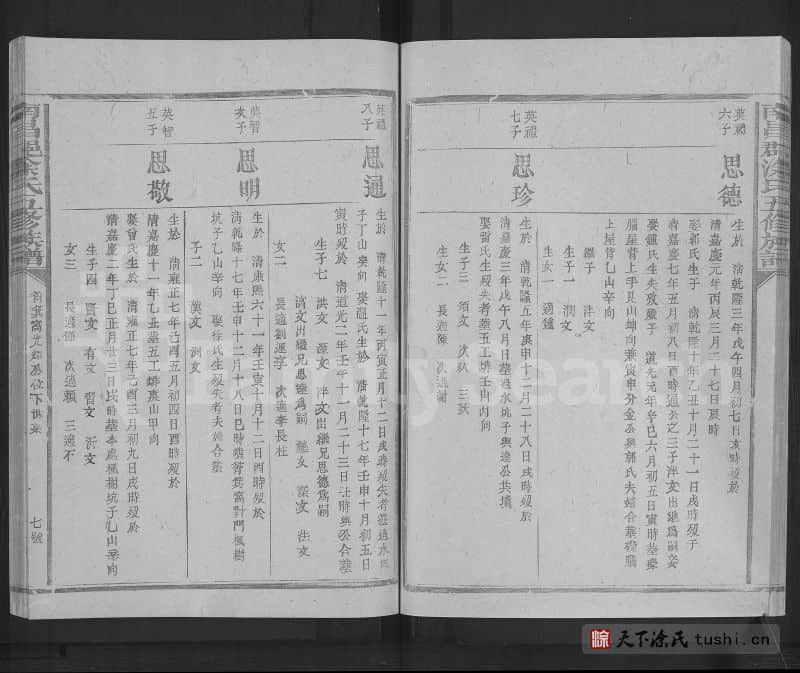 英禮
六子
思德
生於 清乾隆三年戊午四月初七日亥時歿於
清嘉慶元年丙辰三月二十七日辰時
娶郭氏生于 清乾隆十年乙丑十月二十一日戌時歿于
清嘉慶七年五月初八日酉時通公之三子泮文出繼為嗣妾
娶鍾氏生失考嚴子 道光元年辛巳六月初五日寅時墓
屋背上手艮山坤向兼寅申分金公與郭氏夫婦合墓
上屋背乙山辛向
繼子一 泮文
生子一 潤文
生女一 適鍾
英禮
七子
思珍
生於 清乾隆五年庚申十二月二十八日戌時歿於
清嘉慶三年戊午八月日墓過水坑子與達公共墳
娶雷氏生歿失考墓五工排壬山丙向
生子三 頌文 次 三
生女二 長適陳 次適謝
英禮
八子
思通
生於 清乾隆十一年丙寅正月十二日戌時歿失考墓過水坑
子丁山癸向娶溫氏生於 清乾隆十七年壬申十月初五日
寅時歿於 清道光二年壬午十一月二十三日 時與公合墓
生子七 洪文 源文 泮文出繼兄思德為嗣
濱文出繼兄思達為嗣 文 深文 注文
女二 長適劉運亨 次適李長杜
英智
次子
思明
生於 清康熙六十一年壬寅十月十二日酉時歿於
清乾隆十七年壬申十二月十八日巳時墓箕窩對門楓樹
坑子乙山辛向 娶徐氏生歿失考夫婦合墓
子二 漢文 洲文
英智
五子
思敬
生於 清雍正七年己酉五月初四日酉時歿於
清嘉慶十一年乙丑墓五工排寅山甲向
娶曾氏生於 清雍正七年己酉三月初九日戌時歿於
清嘉慶二年丁巳正月廿三日戌時墓本處楓樹坑子乙山辛向
生子四 贊文 有文 習文 沂文
女三 長適鄒 次適賴 三適不
七號
天下涂氏 tushi.cn